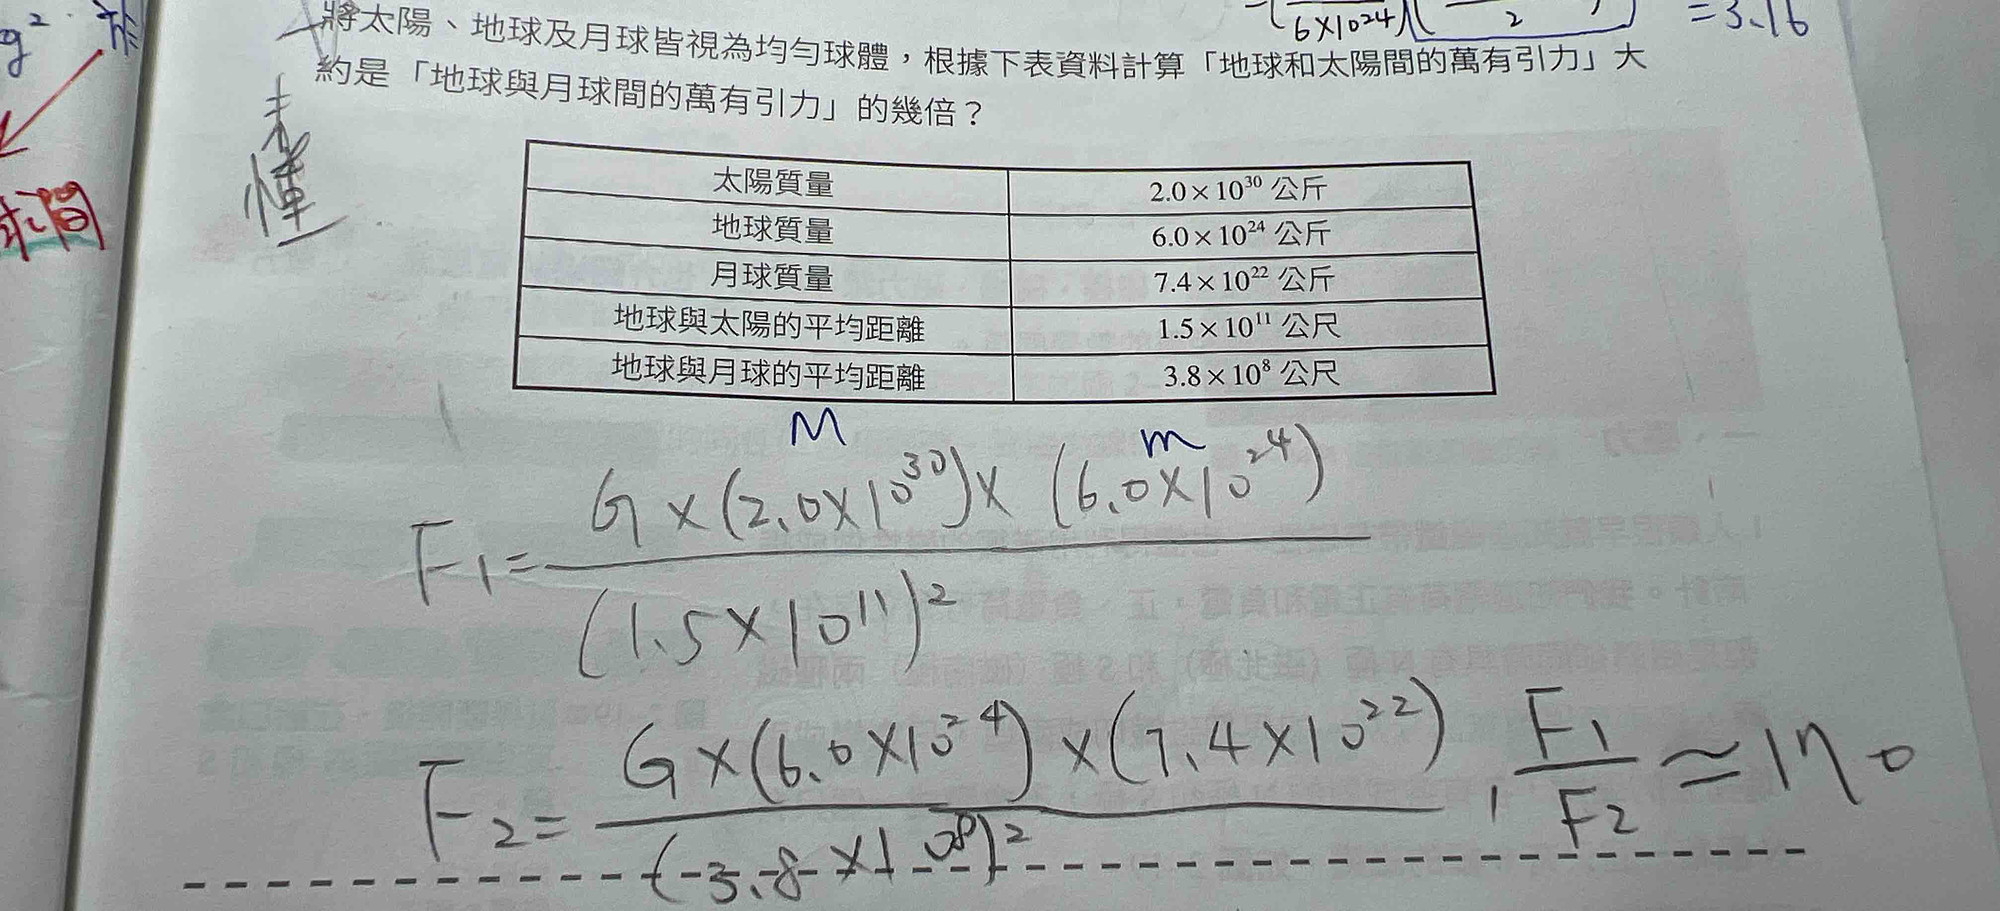 6×10²⁴
2
=3.16
g²
將太陽、地球及月球皆視為均勻球體，根據下表資料計算「地球和太陽間的萬有引力」大
約是「地球與月球間的萬有引力」的幾倍？
未
懂
球間
太陽質量 2.0×10³⁰ 公斤
地球質量 6.0×10²⁴ 公斤
月球質量 7.4×10²² 公斤
地球與太陽的平均距離 1.5×10¹¹ 公尺
地球與月球的平均距離 3.8×10⁸ 公尺
M m
F₁= G×(2.0×10³⁰)×(6.0×10²⁴)
(1.5×10¹¹)²
F₂= G×(6.0×10²⁴)×(7.4×10²²) , F₁/F₂≈170
(3.8×10⁸)²